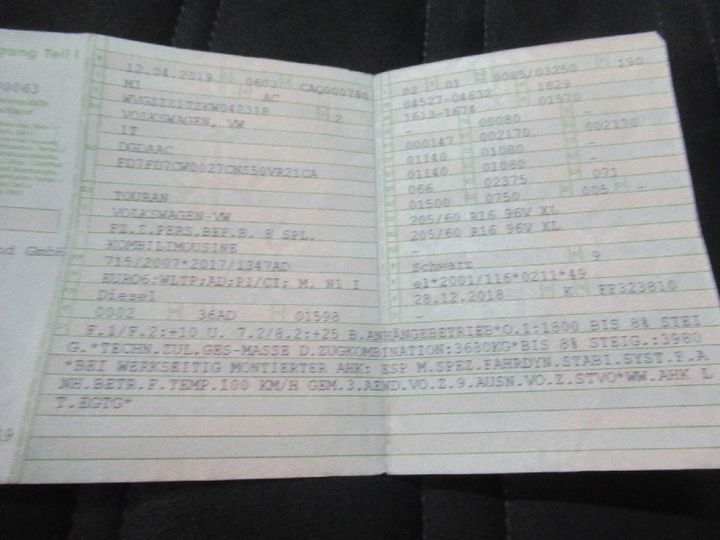 gung Teil I
00063
od GmbH
19
12.04.2019 0603 CAQ000780
M1 AC
2
VOLKSWAGEN, VW
1T
DGDAAC
FD7FD7CW0027CNS50VR21CA
TOURAN
VOLKSWAGEN-VW
FZ.Z.PERS.BEF.B. 8 SPL.
KOMBILIMOUSINE
715/2007*2017/1347AD
EURO6;WLTP;AD;PI/CI; M, N1 I
Diesel
0002 36AD 01598
02 01 0085/03250 190
04527-04632 1829
1613-1674 01570
- 00080 -
000147 002170 002170
01140 01080 -
01140 01080 -
066 02375 071
01500 0750 005 -
205/60 R16 96V XL
205/60 R16 96V XL
-
Schwarz 9
e1*2001/116*0211*49
28.12.2018 K FF323810
-
F.1/F.2:+10 U. 7.2/8.2:+25 B.ANHÄNGEBETRIEB*O.1:1800 BIS 8% STEI
G.*TECHN.ZUL.GES-MASSE D.ZUGKOMBINATION:3680KG*BIS 8% STEIG.:3980
*BEI WERKSEITIG MONTIERTER AHK: ESP M.SPEZ.FAHRDYN.STABI.SYST.F.A
NH.BETR.F.TEMP.100 KM/H GEM.3.AEND.VO.Z.9.AUSN.VO.Z.STVO*WW.AHK L
T.EGTG*